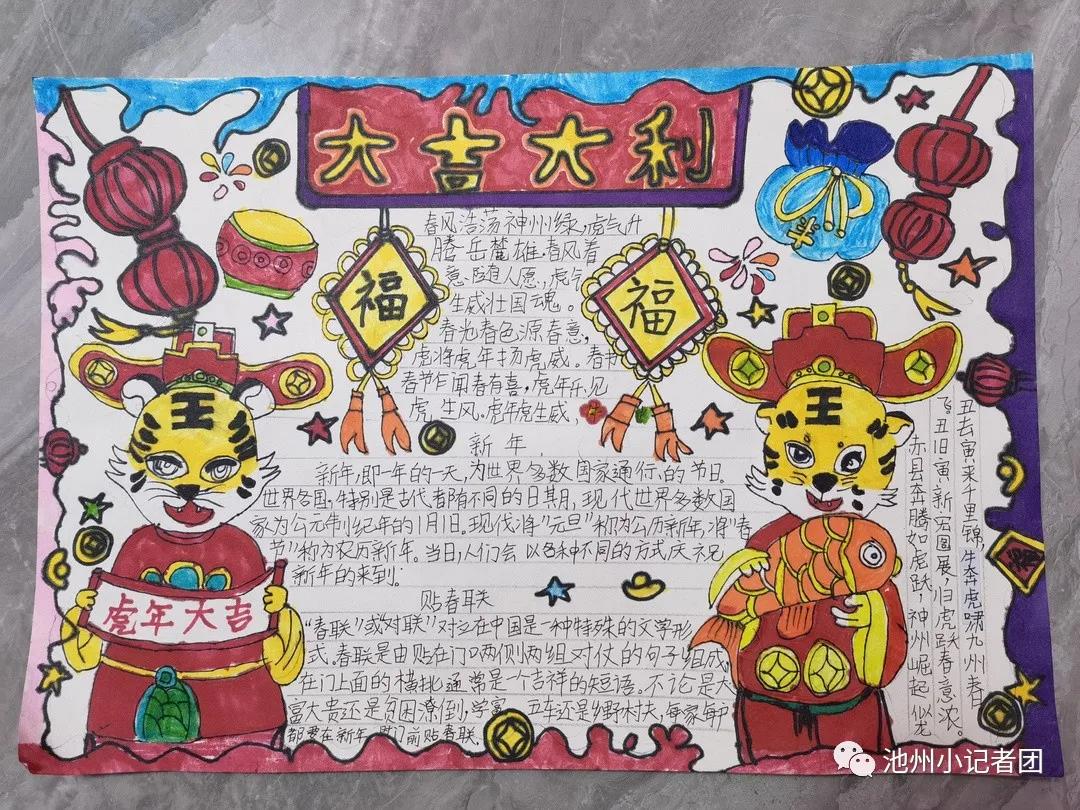 大吉大利
春风浩荡神州绿,虎气升
腾岳麓雄.春风着
意随人愿,虎气
生威壮国魂。
春光春色源春意,
虎将虎年扬虎威。春节
春节乍闻春有喜,虎年乐见
虎生风.虎年虎生威
福
福
王
王
新年
新年,即一年的一天,为世界多数国家通行的节日.
世界各国,特别是古代都有不同的日其期,现代世界多数国
家为公元制纪年的1月1日.现代将“元旦”称为公历新年,将“春
节”称为农历新年。当日,人们会以各种不同的方式庆祝
新年的来到.
贴春联
“春联”或“对联”对立在中国是一种特殊的文学形
式.春联是由贴在门口两侧两组对仗的句子组成,
在门上面的横批通常是一个吉祥的短语。不论是大
富大贵还是贫困潦倒,学富五车还是乡野村夫,每家每户
都要在新年门前贴春联.
虎年大吉
丑去寅来千里锦,牛奔虎啸九州春
飞.丑旧寅新宏图展,归虎跃春意浓。
赤县奔腾如虎跃,神州崛起似龙
池州小记者团